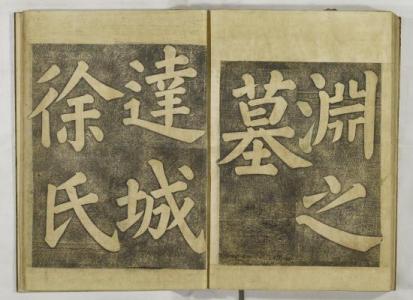 淵之
墓
達城
徐氏